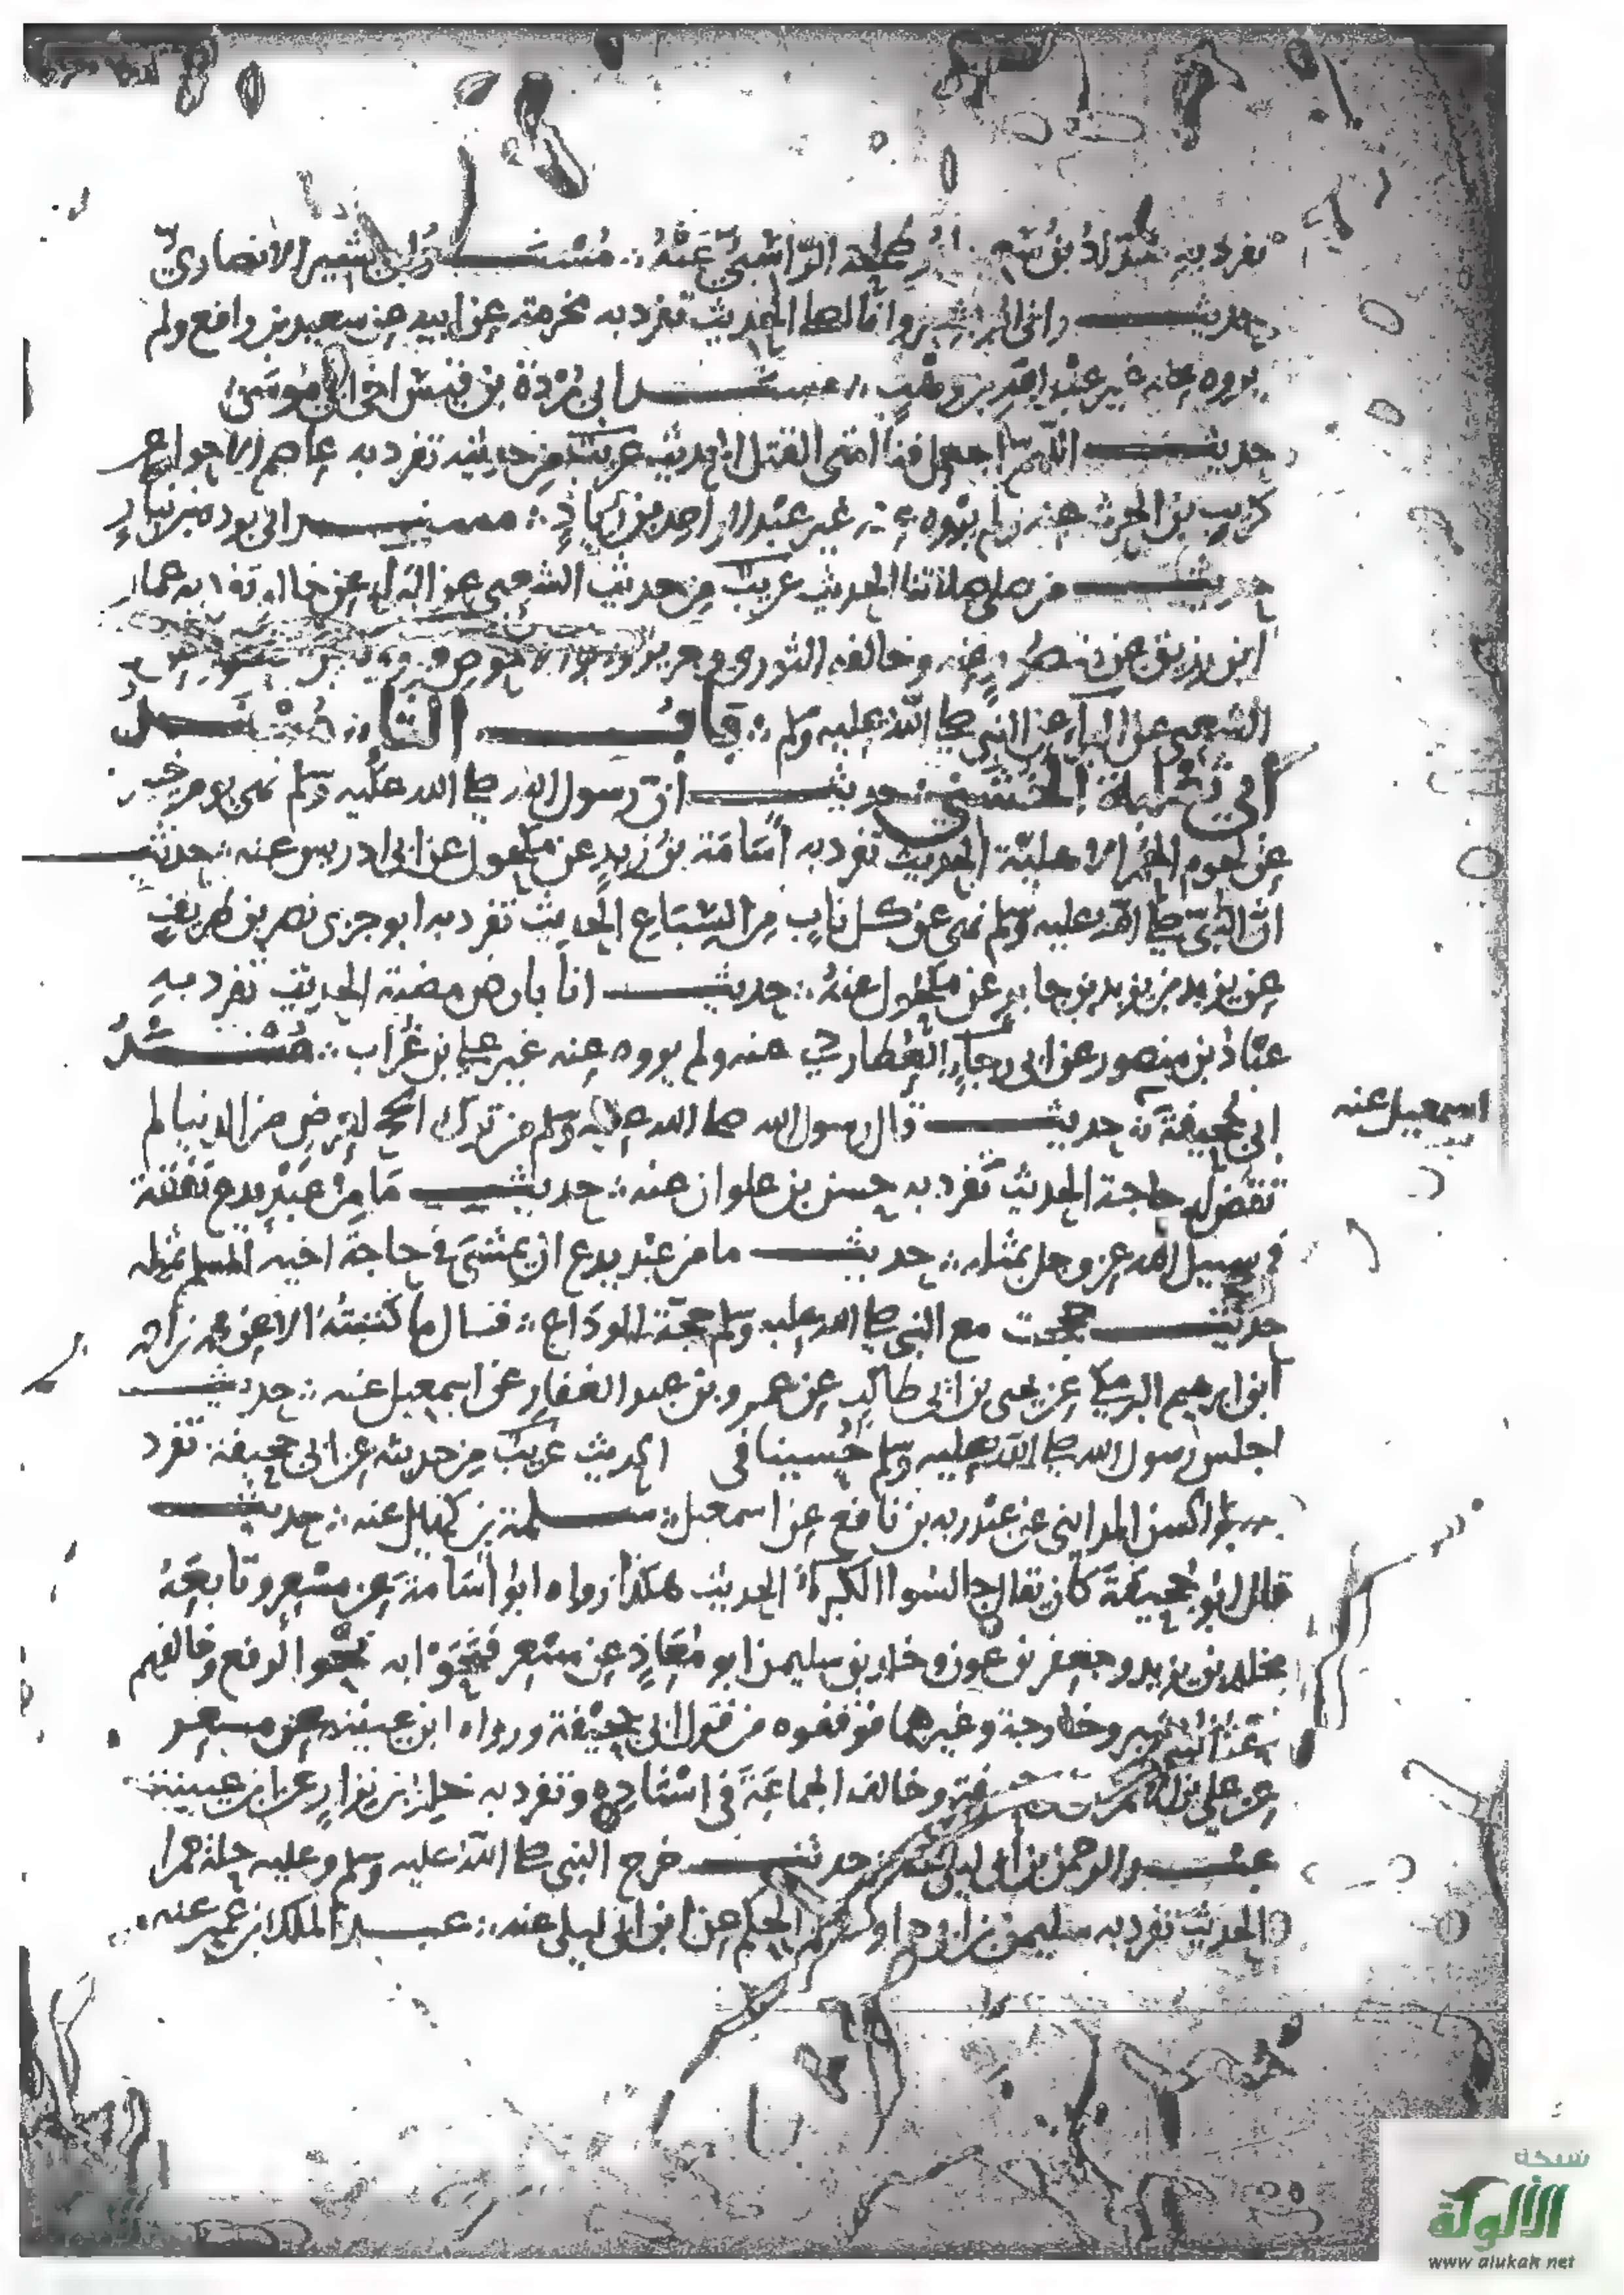 تفرد به شداد بن سعيد الراسبي عنه ∴ مسند أبي بشير الأنصاري
حديث رأني أبو بشير وأنا أصلي الحديث تفرد به مخرمة عن أبيه عن سعيد بن رافع ولم
يروه عنه غير عبد الله بن وهب ∴ مسند أبي بردة بن قيس أخي أبي موسى
حديث اللهم اجعل فناء أمتي القتل الحديث غريب من حديثه تفرد به عاصم الأحول عن
كريب بن الحرث عنه ولم يروه عنه غير عبد الواحد بن زياد ∴ مسند أبي بردة بن نيار
حديث من صلى صلاتنا الحديث غريب من حديث الشعبي عن البراء عن خاله تفرد به عمار
ابن رزيق عن منصور عنه وخالفه الثوري وجرير وأبو الأحوص
الشعبي عن البراء عن النبي صلى الله عليه وسلم ∴ باب الثاء ∴ مسند
أبي ثعلبة الخشني ∴ حديث أن رسول الله صلى الله عليه وسلم نهى يوم خيبر
عن لحوم الحمر الأهلية الحديث تفرد به أسامة بن زيد عن مكحول عن أبي إدريس عنه ∴ حديث
أن النبي صلى الله عليه وسلم نهى عن كل ناب من السباع الحديث تفرد به أبو جزي نصر بن طريف
عن يزيد بن يزيد بن جابر عن مكحول عنه ∴ حديث أنا بأرض مضبة الحديث تفرد به
عباد بن منصور عن أبي رجاء العطاردي عنه ولم يروه عنه غير علي بن غراب ∴ مسند
أبي جحيفة ∴ حديث قال رسول الله صلى الله عليه وسلم من ترك الحج لغرض من الدنيا لم
تقض له حاجة الحديث تفرد به حسن بن علوان عنه ∴ حديث ما من عبد يدع نفقة
في سبيل الله عز وجل بمثله ∴ حديث ما من عبد يدع أن يمشي في حاجة أخيه المسلم بمثله
حديث حججت مع النبي صلى الله عليه وسلم حجة الوداع ∴ فسأل ما كتبته إلا عن محمد بن
ابن ابرهيم البرمكي عن يحيى بن أبي طالب عن عمرو بن عبد الغفار عن اسمعيل عنه ∴ حديث
اسمعيل عنه
اجلس رسول الله صلى الله عليه وسلم حسينا في الحديث غريب من حديثه عن أبي جحيفة تفرد
به أبو الحسن المدايني عن عبد ربه بن نافع عن اسمعيل ∴ سلمة بن كهيل عنه ∴ حديث
قال أبو جحيفة كان يقال جالسوا الكبراء الحديث هكذا رواه أبو أسامة عن مسعر وتابعه
مخلد بن يزيد وجعفر بن عون وخلد بن سليمن أبو معاذ عن مسعر فنحوا به نحو الرفع وخالفهم
وخارجة وغيرهما فوقفوه من قول أبي جحيفة ورواه ابن عيينة عن مسعر
عن علي بن الأقمر وخالف الجماعة في اسناده وتفرد به خلد بن نزار عن ابن عيينة
عبد الرحمن بن أبي ليلى عنه حديث خرج النبي صلى الله عليه وسلم وعليه حلة حمرا
الحديث تفرد به سليمن بن أبي داود عن الحكم عن ابن أبي ليلى عنه ∴ عبد الملك بن عمير عنه
شبكة
الألوكة
www alukah net